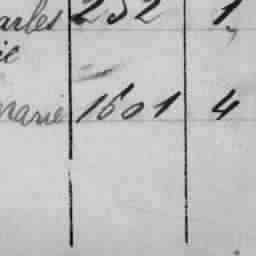 arles 252 1
ie
marie 1601 4